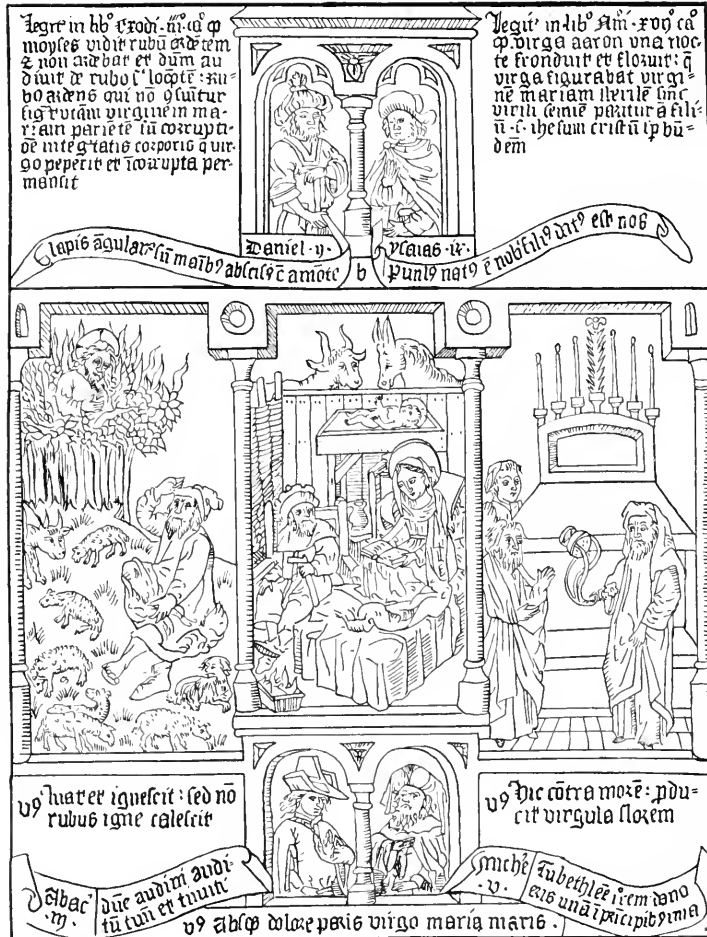 Legit' in libº Exodi ·iii· caº ꝙ
moyses vidit rubū ardētem
⁊ non ardebat et dum au
divit de rubo
bo ardens qui nō ꝯsuītur
virginem ma-
riam pariētē sn̄ corrupti-
ōe integritatis corporis q̄ vir-
go peperit et īcorrupta per-
mansit
Legit' in libº xvii caº
ꝙ virga aaron vna noc-
te fronduit et floruit: q̄
virga figurabat virgi-
nē mariam sterilē
virili semīe paritura fili-
ū ·s· ihesum cristū
dēm
Daniel ·ii·
ysaias ·ix·
lapis āgular' sn̄ manib9 abscis9 ē amōte
b
Puul9 nat9 ē nob' fili9 dat9 est nob
v9 lucet et ignescit : sed nō
rubus igne calescit
v9 hic cōtra morē : ꝓdu-
cit virgula florem
Abac'
·iii·
dn̄e audivi audi-
tū tuū et timui
miche'
·v·
Tu bethleē
v9 absꝙ dolore paris virgo maria maris ·